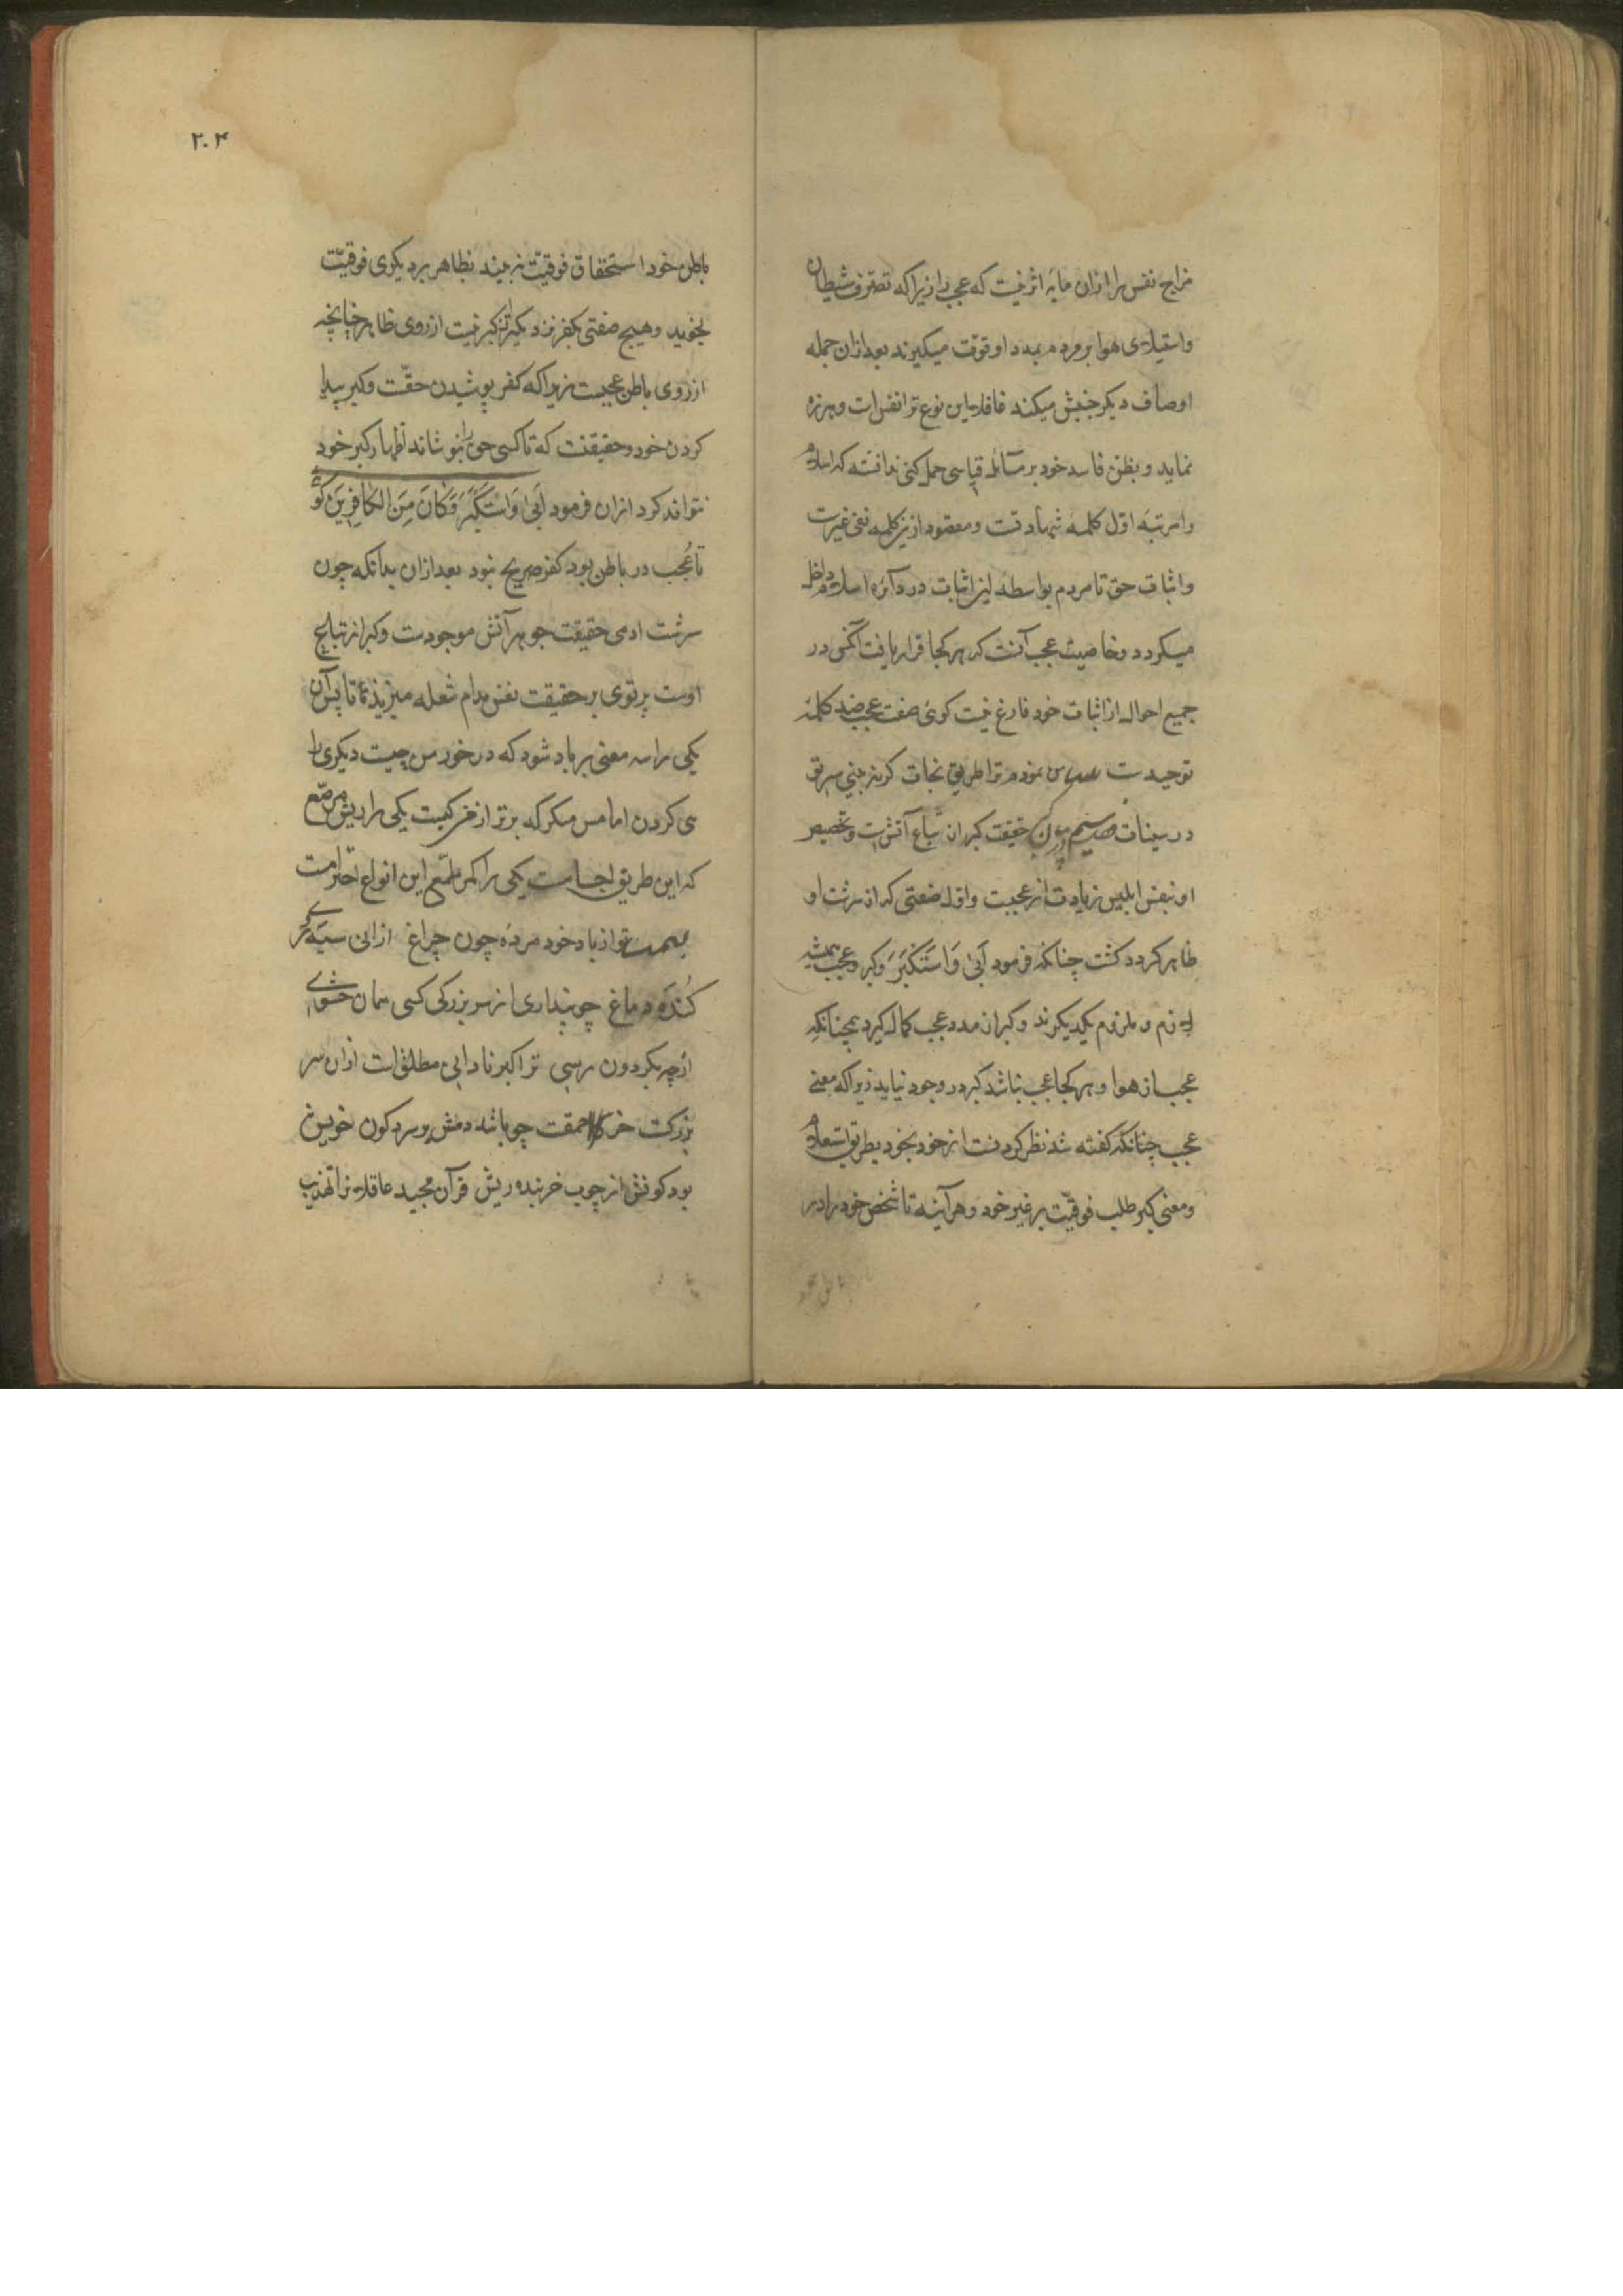 مزاج نفس را ازان مایه اثر نیست که عجب را زیرا که تصرف شیطان
واستیلای هوا بر مردم بمدد او قوت میگیرند بعد ازان جمله
اوصاف دیگر جنبش میکند غافلا این نوع ترا نفس است وهرزه
نماید و بظن فاسد خود بر مسائل قیاسی حمل کنی ندانسته که اسلام
را مرتبه اول کلمه شهادتست ومقصود ازین کلمه نفی غیرست
واثبات حق تا مردم بواسطه این اثبات در دائره اسلام داخل
میکردد وخاصیت عجب آنست که هر کجا قرار یافت آنکس در
جمیع احوال از اثبات خود فارغ نیست کوئی صفت عجب ضد کلمه
توحیدست نمودم ترا طریق نجات کر نه بینی
در سینات حقیقت کبر ان تباع آتش است وتخصیص
او بنفس ابلیس زیادت از عجبست واول صفتی که از سرشت او
ظاهر کردد کشت چنانکه فرمود أَبَىٰ وَاسْتَكْبَرَ وکبر وعجب همیشه
لازم و ملزوم یکدیکرند وکبر از مدد عجب کمال کیرد همچنانکه
عجب از هوا و هر کجا عجب نباشد کبر در وجود نیاید زیرا که معنی
عجب چنانکه کفته شد نظر کردنست از خود بخود بطریق استعلاء
ومعنی کبر طلب فوقیّت بر غیر خود وهر آینه تا شخص خود را در
باطن خود
۲۰۴
باطن خود استحقاق فوقیّت نه بیند بظاهر بر دیگری فوقیّت
نجوید وهیچ صفتی بکفر نزدیکتر از کبر نیست از روی ظاهر چنانچه
از روی باطن عجبست زیرا که کفر پوشیدن حقّست وکبر پیدا
کردن خود وحقیقتست که تا کسی حق را نپوشاند اظهار کبر خود
نتواند کرد ازان فرمود أَبَىٰ وَاسْتَكْبَرَ وَكَانَ مِنَ الْكَافِرِينَ کو
تا عُجب در باطن بود کفر صریح نبود بعد ازان بدانکه چون
سرشت ادمی حقیقت جوهر آتش موجودست وکبر از نتایج
اوست پرتوی بر حقیقت نفس مدام شعله میزند تا
یکی را سه معنی بر باد شود که در خور من چیست دیگری را
می کردن اما من که برتر از من کیست یکی را ریش مرصّع
که این طریق یکی را کمر ملمّع این انواع احترامست
تو از باد خود مرده چون چراغ ازانی سیه
کنده دماغ چو پنداری از سر بزرگی کسی همان
ارچه بکردون رسی ترا کبر نادانی مطلقست ازان سر
بزرکست خر احمقست چو باشد دمش بر سر کون خویش
بود کونش از چوب خربنده ریش قرآن مجید عاقلا ترا تهذیب